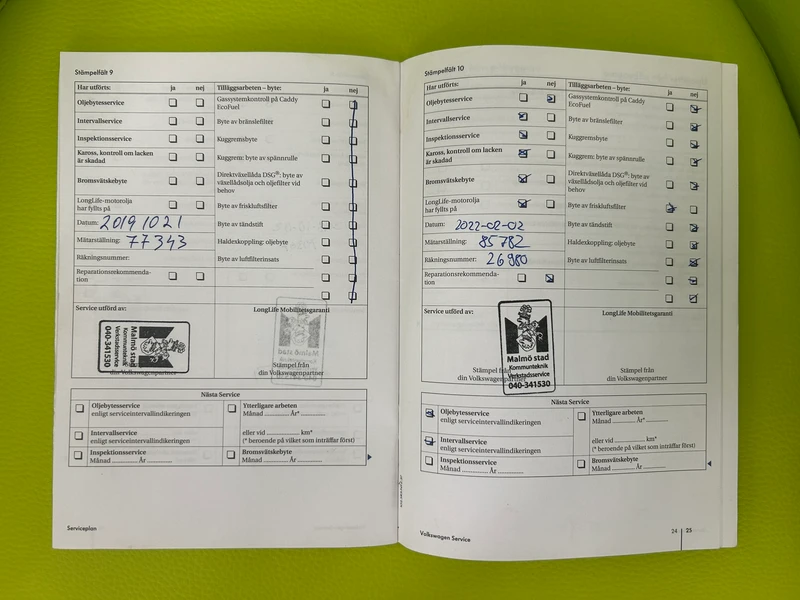 Stämpelfält 9
Har utförts: ja nej
Oljebytesservice
Intervallservice
Inspektionsservice
Kaross, kontroll om lacken
är skadad
Bromsvätskebyte
LongLife-motorolja
har fyllts på
Datum: 20191021
Mätarställning: 77343
Räkningsnummer:
Reparationsrekommenda-
tion
Tilläggsarbeten – byte: ja nej
Gassystemkontroll på Caddy
EcoFuel
Byte av bränslefilter
Kuggremsbyte
Kuggrem: byte av spännrulle
Direktväxellåda DSG®: byte av
växellådsolja och oljefilter vid
behov
Byte av friskluftsfilter
Byte av tändstift
Haldexkoppling: oljebyte
Byte av luftfilterinsats
Service utförd av:
Malmö stad
Kommunteknik
Verkstadsservice
040-341530
LongLife Mobilitetsgaranti
Stämpel från
din Volkswagenpartner
Nästa Service
Oljebytesservice
enligt serviceintervallindikeringen
Intervallservice
enligt serviceintervallindikeringen
Inspektionsservice
Månad ............ År ............
Ytterligare arbeten
Månad ............ År* ............
eller vid ............ km*
(* beroende på vilket som inträffar först)
Bromsvätskebyte
Månad ............ År ............
Serviceplan
Stämpelfält 10
Har utförts: ja nej
Oljebytesservice
Intervallservice
Inspektionsservice
Kaross, kontroll om lacken
är skadad
Bromsvätskebyte
LongLife-motorolja
har fyllts på
Datum: 2022-02-02
Mätarställning: 85782
Räkningsnummer: 26980
Reparationsrekommenda-
tion
Tilläggsarbeten – byte: ja nej
Gassystemkontroll på Caddy
EcoFuel
Byte av bränslefilter
Kuggremsbyte
Kuggrem: byte av spännrulle
Direktväxellåda DSG®: byte av
växellådsolja och oljefilter vid
behov
Byte av friskluftsfilter
Byte av tändstift
Haldexkoppling: oljebyte
Byte av luftfilterinsats
Service utförd av:
Malmö stad
Kommunteknik
Verkstadsservice
040-341530
Stämpel från
din Volkswagenpartner
LongLife Mobilitetsgaranti
Stämpel från
din Volkswagenpartner
Nästa Service
Oljebytesservice
enligt serviceintervallindikeringen
Intervallservice
enligt serviceintervallindikeringen
Inspektionsservice
Månad ............ År ............
Ytterligare arbeten
Månad ............ År* ............
eller vid ............ km*
(* beroende på vilket som inträffar först)
Bromsvätskebyte
Månad ............ År ............
Volkswagen Service
24 | 25